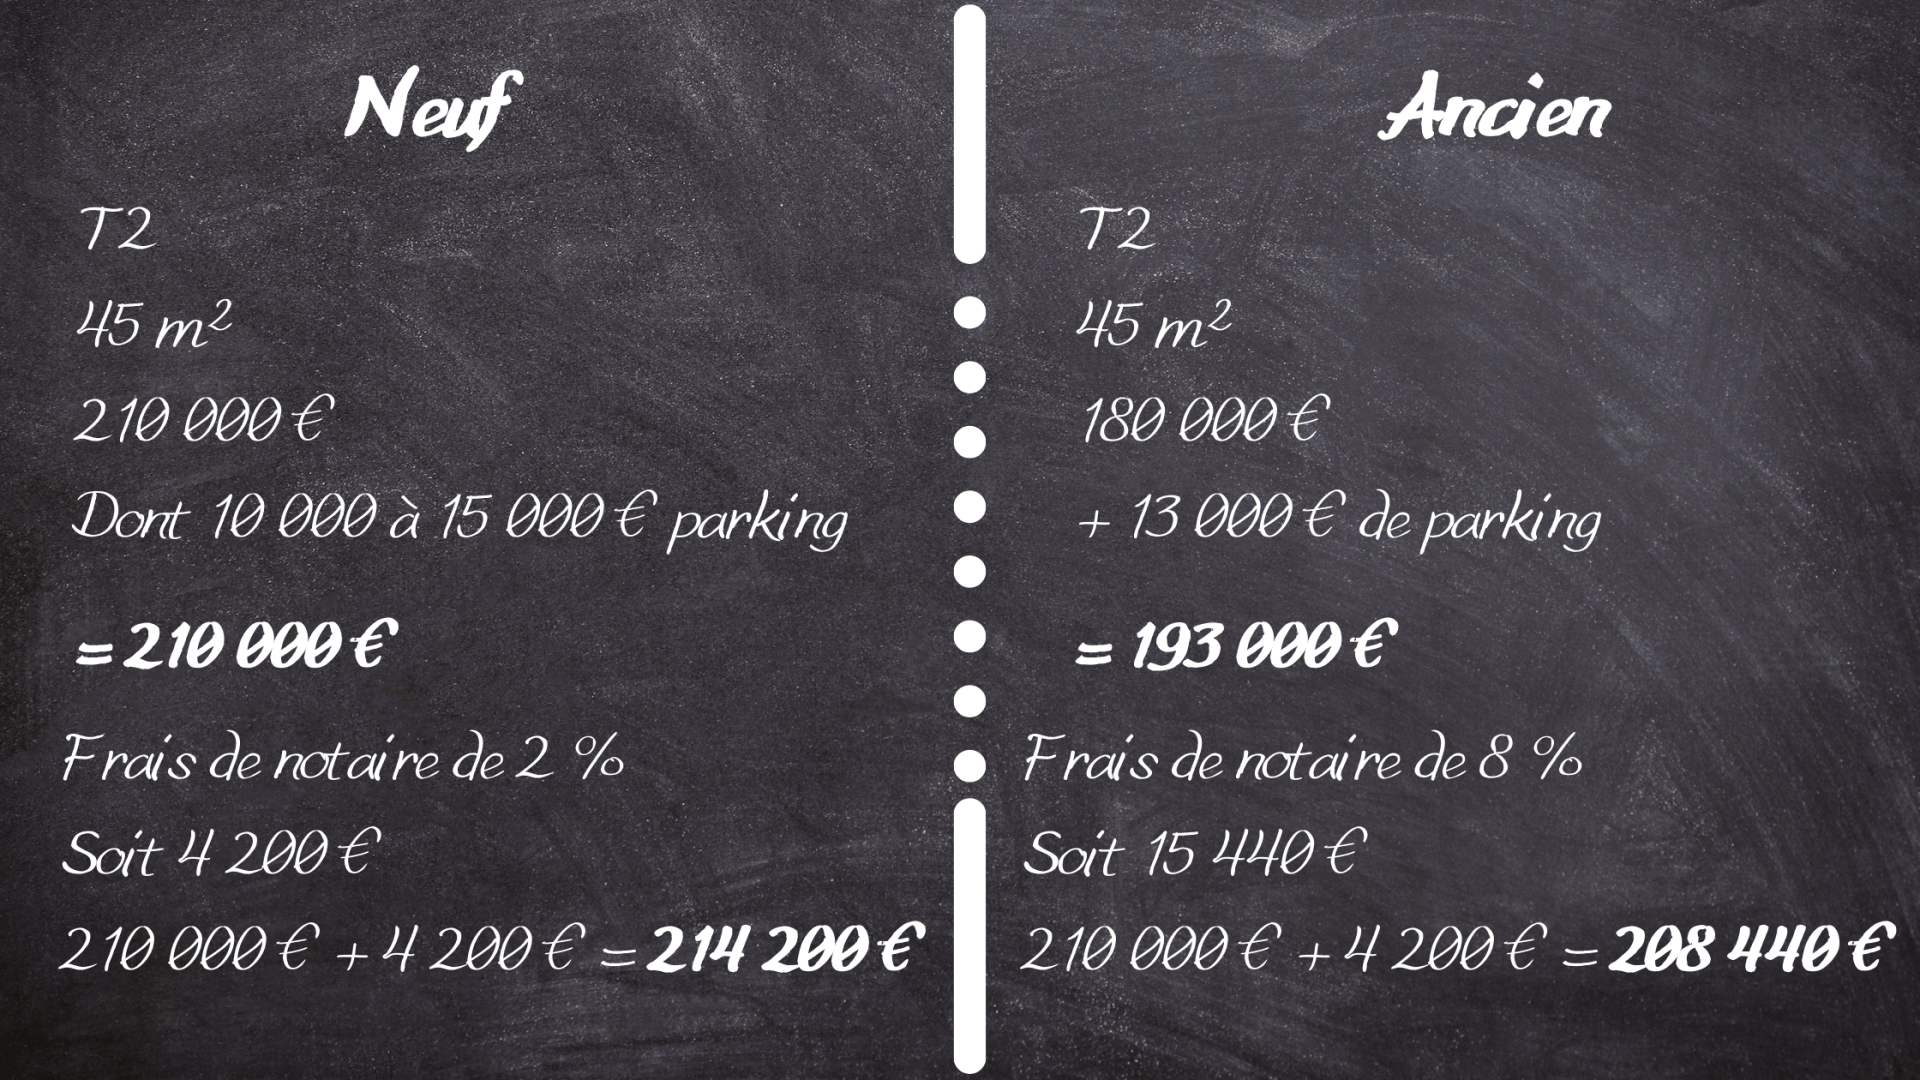 Neuf
T2
45 m²
210 000 €
Dont 10 000 à 15 000 € parking
= 210 000 €
Frais de notaire de 2 %
Soit 4 200 €
210 000 € + 4 200 € = 214 200 €
Ancien
T2
45 m²
180 000 €
+ 13 000 € de parking
= 193 000 €
Frais de notaire de 8 %
Soit 15 440 €
210 000 € + 4 200 € = 208 440 €